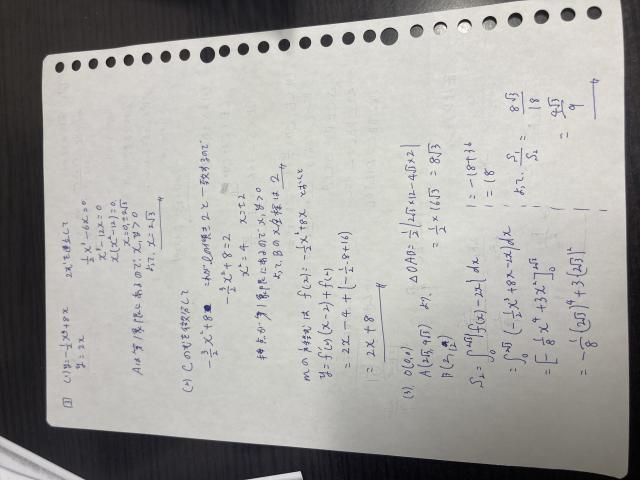 3 (1) y=-1/2x³+8x 2式を連立して
y=2x
1/2x³-6x=0
x³-12x=0
x(x²-12)=0
x=0,±2√3
Aは第1象限にあるので、x,y>0
よって、x=2√3
(2) Cの式を微分して
-3/2x²+8 これがlの傾き2と一致するので
-3/2x²+8=2
x²=4 x=±2
接点が第1象限にあるので x,y>0
よって、Bのx座標は2
mの方程式は f(x)=-1/2x³+8x とおくと
y=f'(2)(x-2)+f(2)
=2x-4+(-1/2・8+16)
=2x+8
(3) O(0,0)
A(2√3,4√3) より、△OAB=1/2|2√3×12-4√3×2|
B(2,12) =1/2×16√3=8√3
S₂=∫₀^2√3|f(x)-2x|dx
=∫₀^2√3(-1/2x³+8x-2x)dx
=[-1/8x⁴+3x²]₀^2√3
=-1/8(2√3)⁴+3(2√3)²
=-18+36
=18
よって、S₁/S₂=8√3/18
=4√3/9